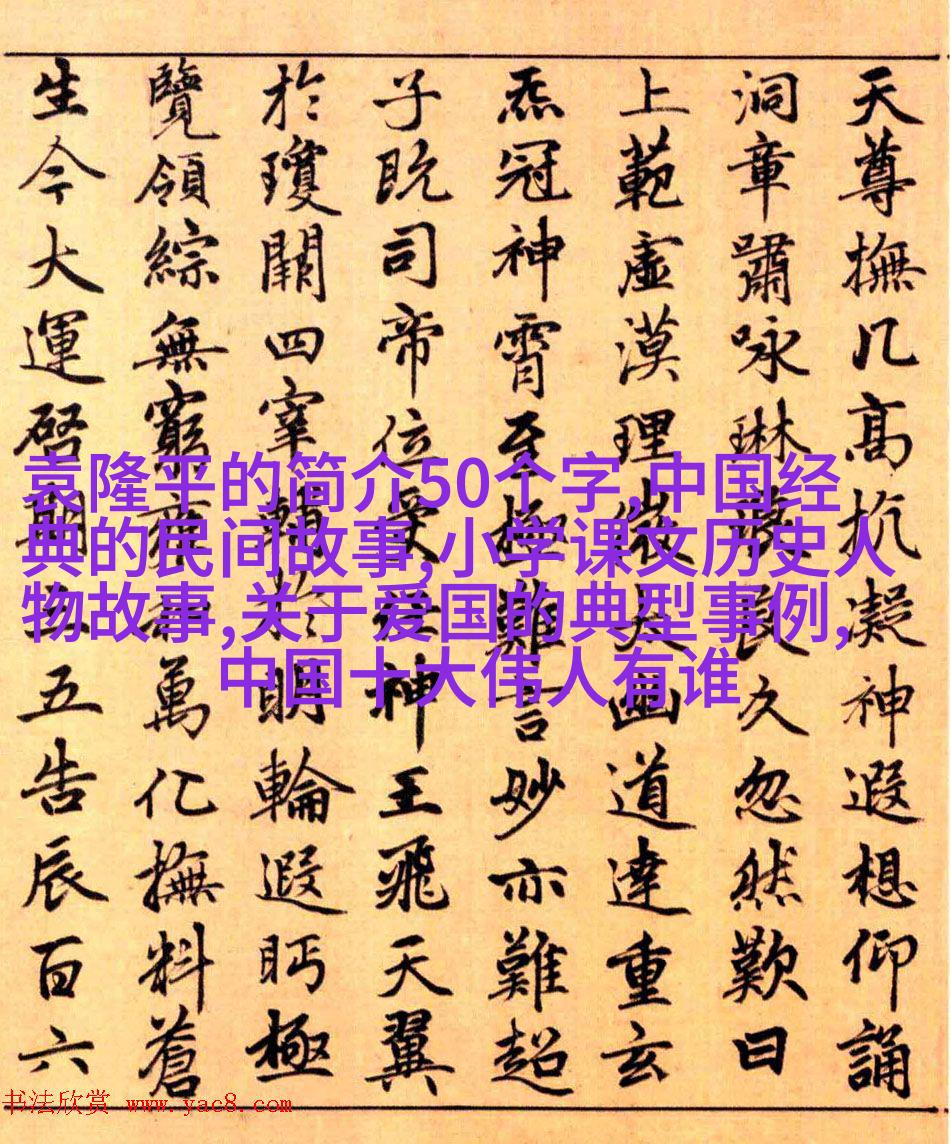 天尊撫几高抗凝神遐想仰誦
洞章嘯咏琳良久忽然歎曰
上範虛漠理微太幽道達重玄
炁冠神霄至極難言妙亦難超
子既司帝位受神王飛天翼
於瓊闕四宰輔於明輪遐眄極
覽領綜無窮萬化撫料蒼
生今大運啓期三五告辰百六
袁隆平的简介50个字,中国经
典的民间故事,小学课文历史人
物故事,关于爱国的典型事例,
中国十大伟人有谁
书法欣赏 www.yac8.com